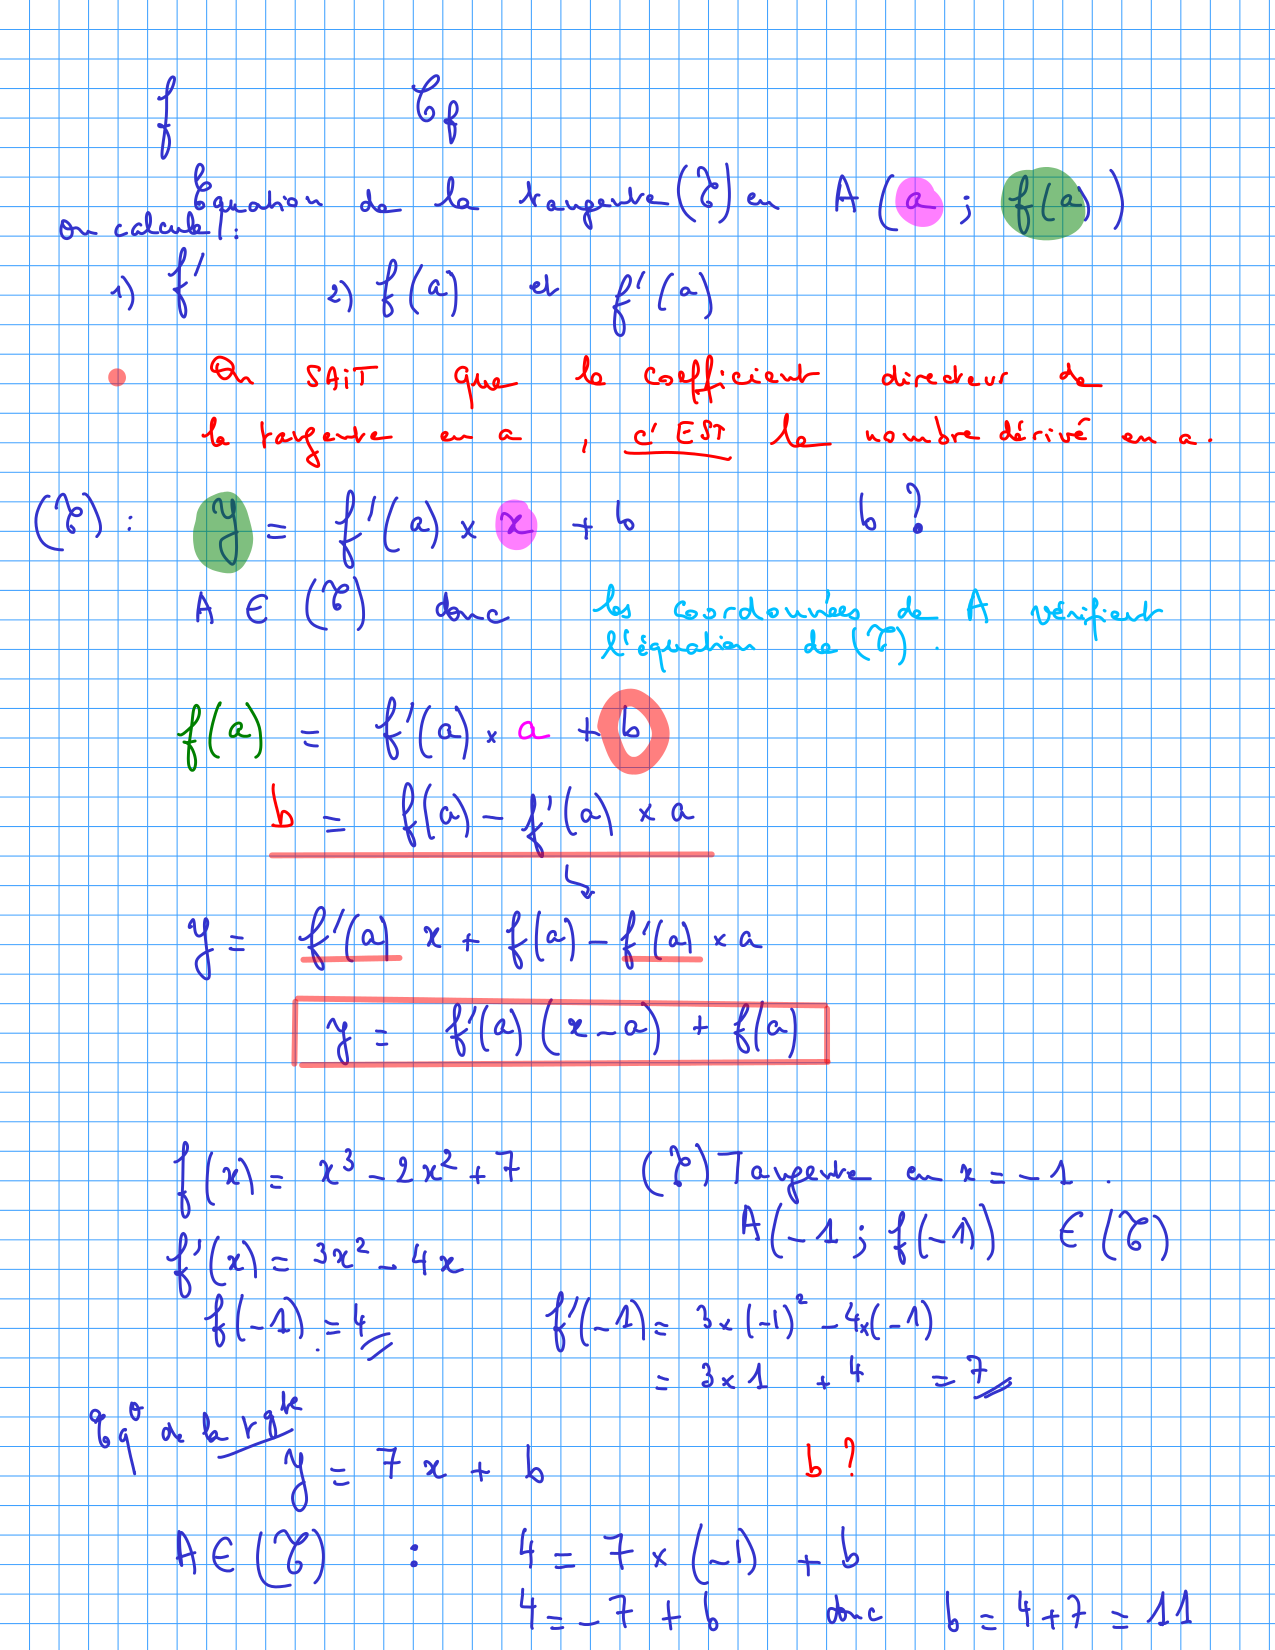 f 𝒞f
Equation de la tangente (𝒯) en A (a ; f(a))
on calcule :
1) f' 2) f(a) et f'(a)
On SAIT que le coefficient directeur de
la tangente en a , c'EST le nombre dérivé en a.
(𝒯) : y = f'(a) × x + b b ?
A ∈ (𝒯) donc les coordonnées de A vérifient
l'équation de (𝒯).
f(a) = f'(a) × a + b
b = f(a) - f'(a) × a
↳
y = f'(a) x + f(a) - f'(a) × a
y = f'(a) (x - a) + f(a)
f(x) = x³ - 2x² + 7 (𝒯) Tangente en x = -1 .
A(-1 ; f(-1)) ∈ (𝒯)
f'(x) = 3x² - 4x
f(-1) = 4 f'(-1) = 3×(-1)² - 4×(-1)
= 3×1 + 4 = 7
Eq° de la tgte
y = 7 x + b b ?
A ∈ (𝒯) : 4 = 7 × (-1) + b
4 = -7 + b donc b = 4+7 = 11